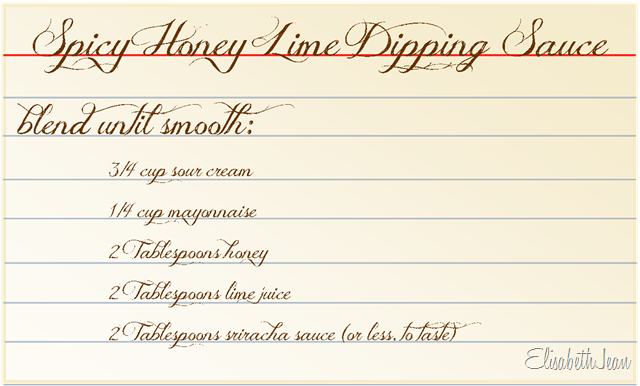 Spicy Honey Lime Dipping Sauce
blend until smooth:
3/4 cup sour cream
1/4 cup mayonnaise
2 Tablespoons honey
2 Tablespoons lime juice
2 Tablespoons sriracha sauce (or less, to taste)
ElisabethJean